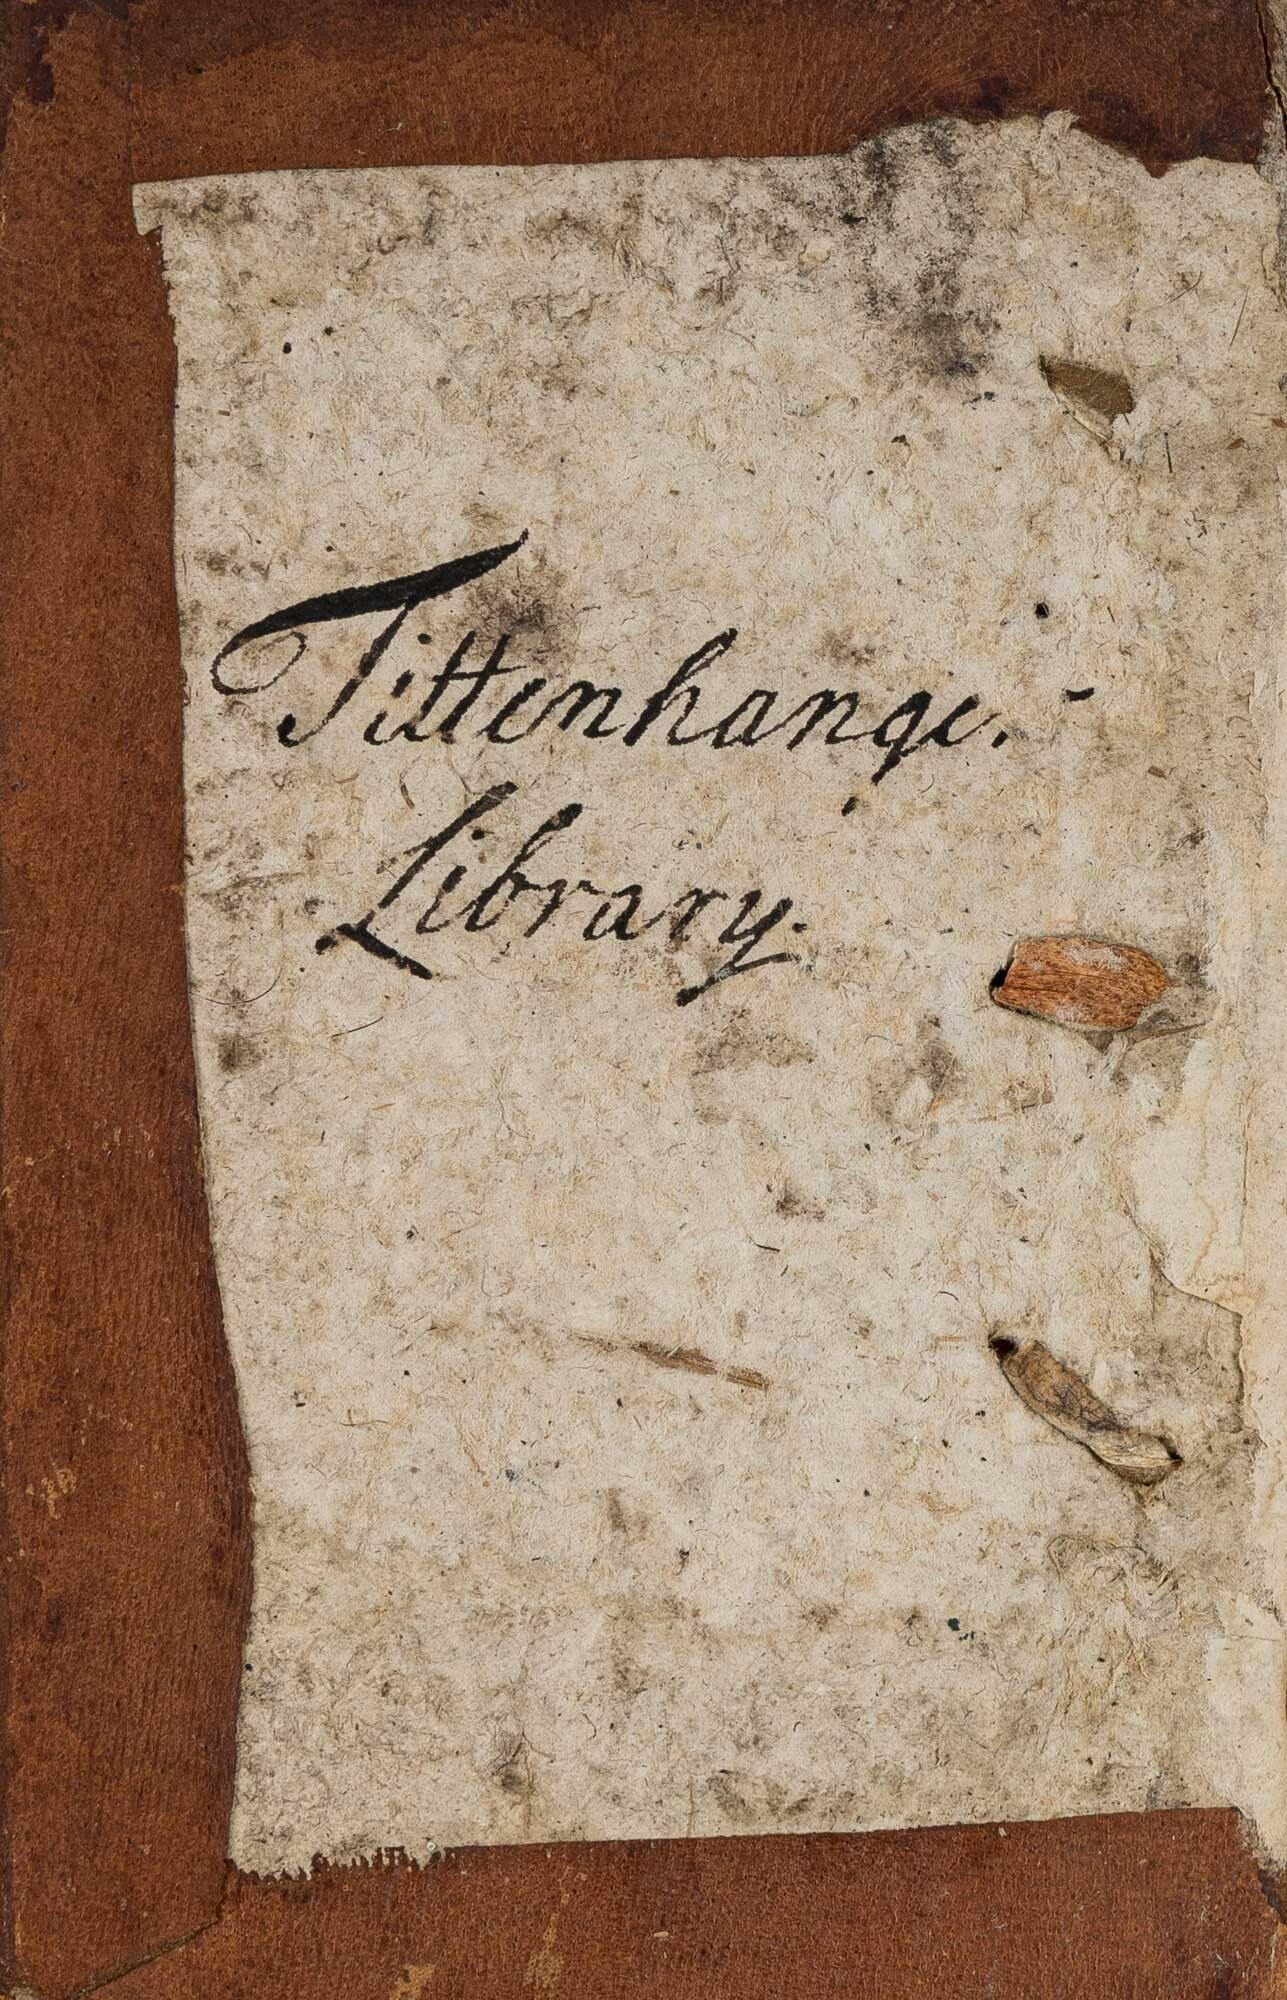 Tittenhange. -
Library.